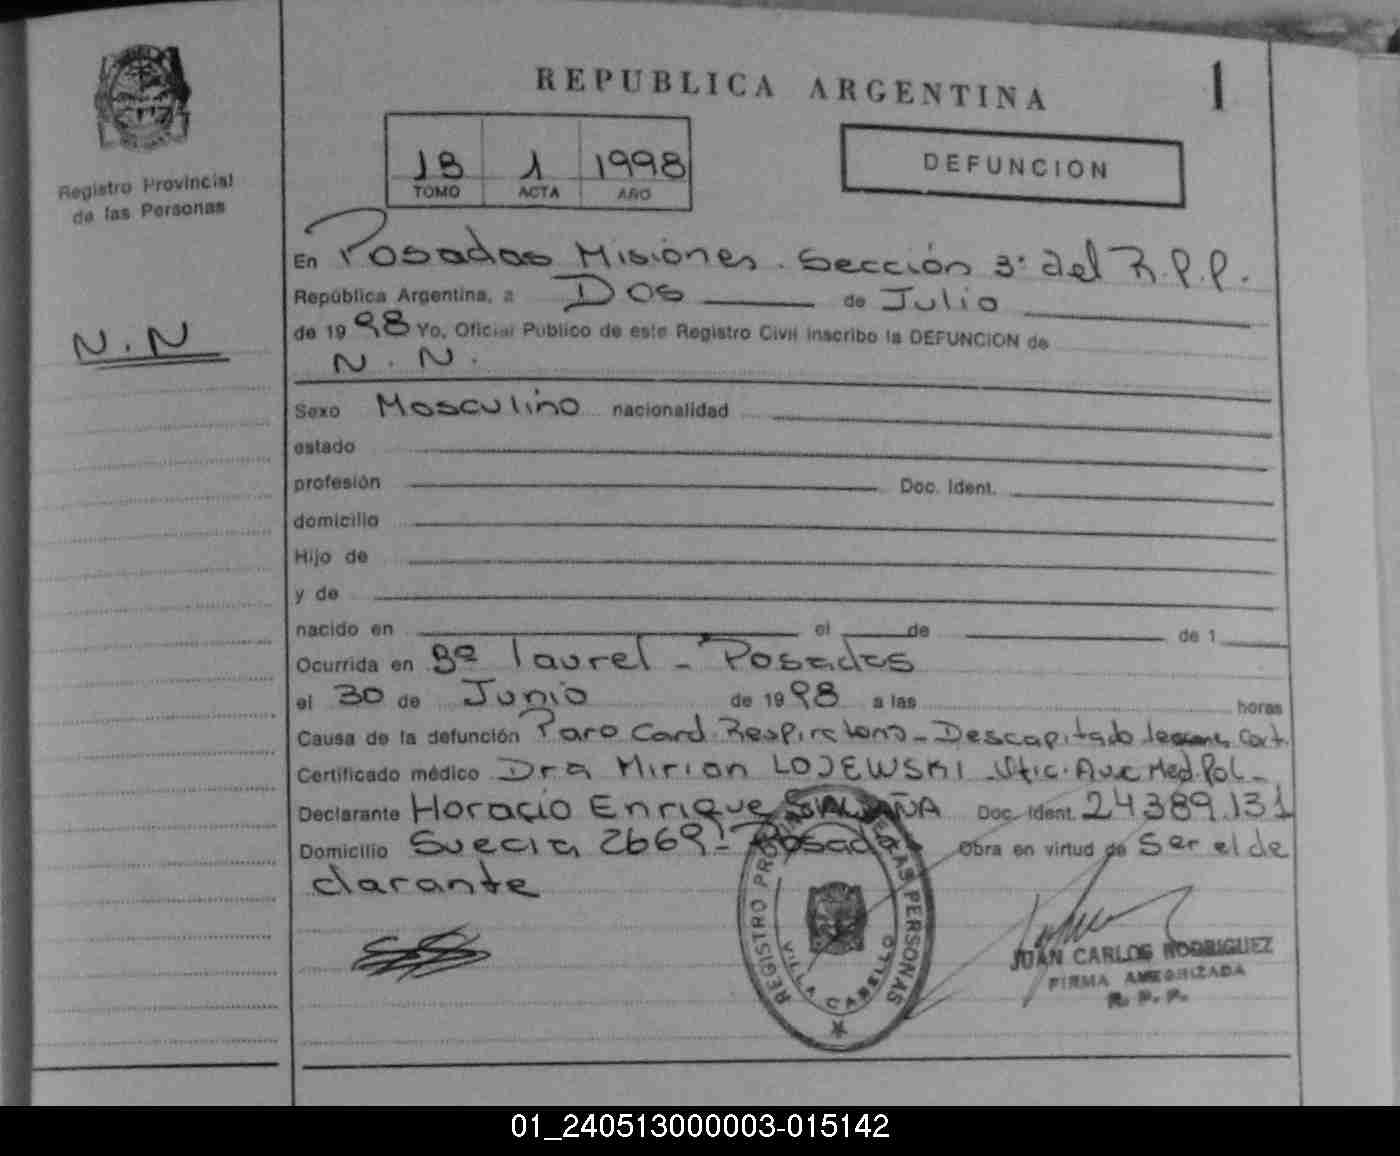 REPUBLICA ARGENTINA
1
Registro Provincial
de las Personas
1B 1 1998
TOMO ACTA AÑO
DEFUNCION
N.N
En Posadas Misiones. Sección 3ª del R.P.P.
República Argentina, a Dos de Julio
de 1998 Yo, Oficial Público de este Registro Civil inscribo la DEFUNCION de
N.N.
Sexo Masculino nacionalidad
estado
profesión Doc. Ident.
domicilio
Hijo de
y de
nacido en el de de 1
Ocurrida en Bº laurel - Posadas
el 30 de Junio de 1998 a las horas
Causa de la defunción Paro Card. Respiratorio - Descapitado
Certificado médico Dra Mirian LOJEWSKI Med. Pol-
Declarante Horacio Enrique Doc. Ident. 24389.131
Domicilio Suecia 2669 - Posadas Obra en virtud de Ser el de
clarante
REGISTRO PROVINCIAL DE LAS PERSONAS
VILLA CABELLO
JUAN CARLOS RODRIGUEZ
FIRMA AUTORIZADA
R. P. P.
01_240513000003-015142